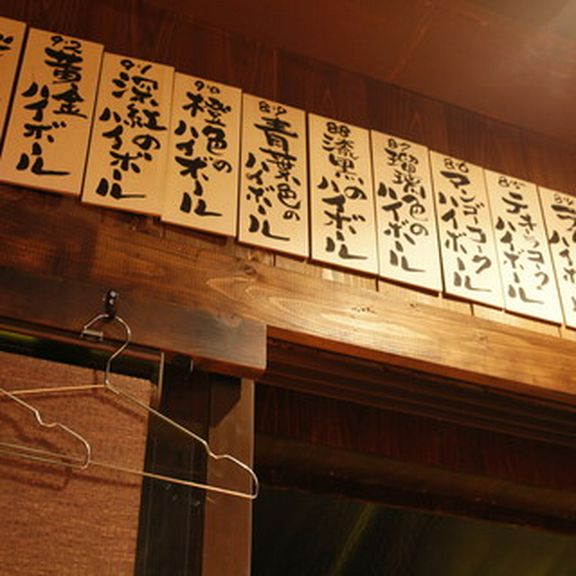 92
黄金
ハイボール
91
深紅の
ハイボール
90
橙色の
ハイボール
89
青葉色の
ハイボール
88
漆黒の
ハイボール
87
瑠璃色の
ハイボール
86
マンゴーコーク
ハイボール
85
テキーラコーク
ハイボール
84